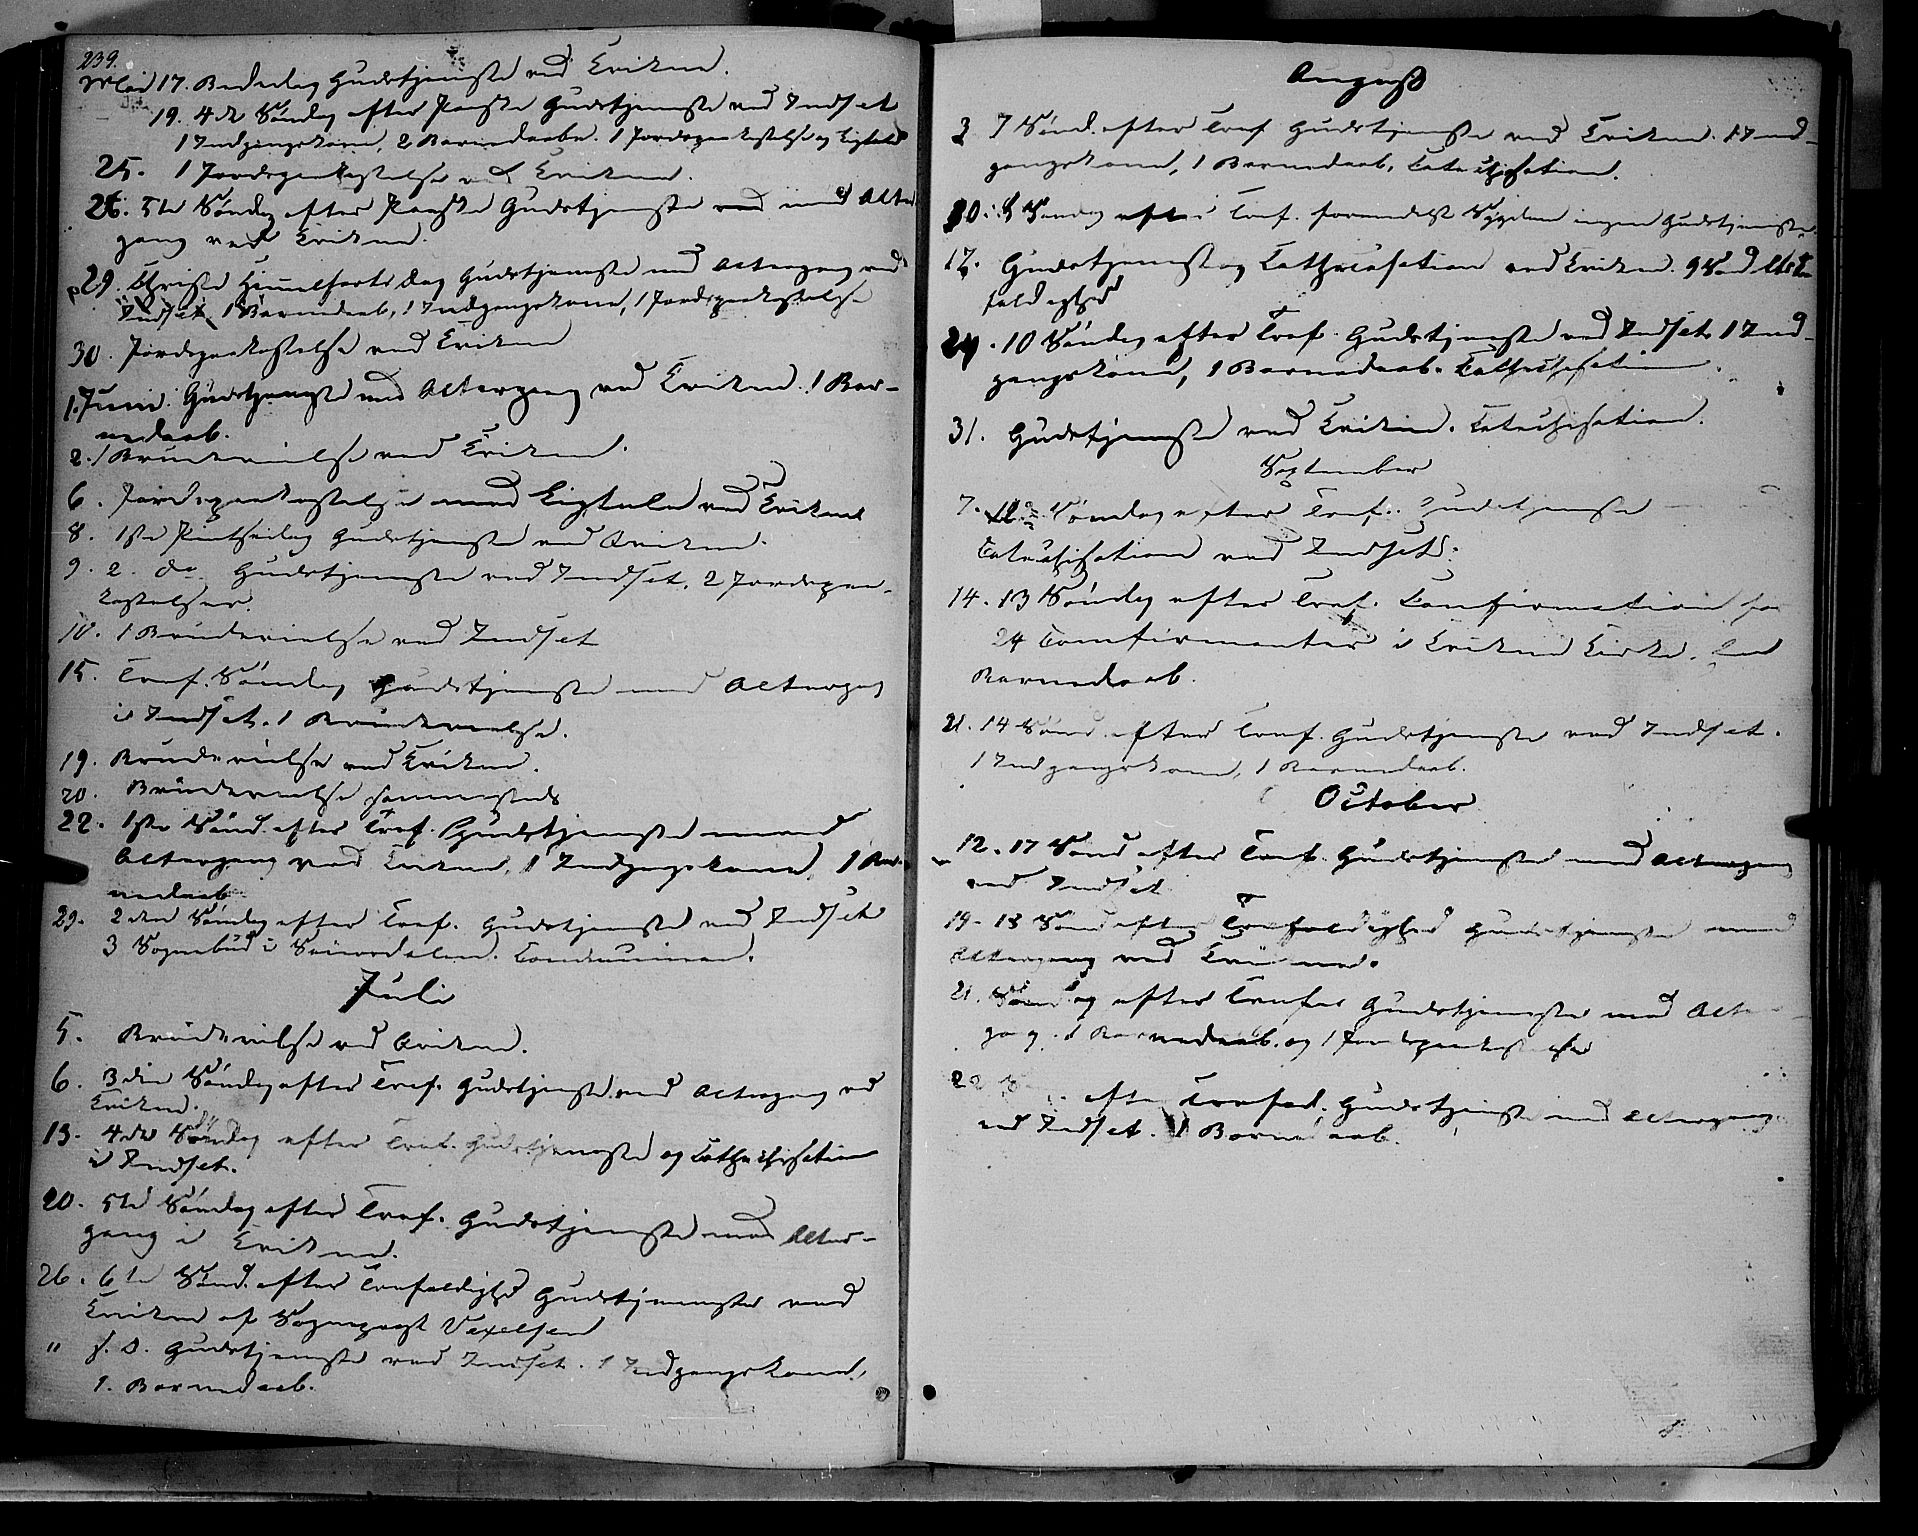 239.
Mai 17. Bededag Gudstjeneste ved Qvikne.
19. 4de Søndag efter Paaske Gudstjeneste ved Indset
1 Indgangskone, 2 Barnedaabe. 1 Jordspaakastelse og Ligtale
25. 1 Jordspaakastelse ved Qvikne.
26. 5te Søndag efter Paaske Gudstjeneste med Alter
gang ved Qvikne.
29. Christi Himmelfarts Dag Gudstjeneste med Altergang ved
Indset, 1 Barnedaab, 1 Indgangskone, 1 Jordspaakastelse
30. Jordspaakastelse ved Qvikne
1. Juni Gudstjeneste med Altergang ved Qvikne. 1 Bar-
nedaab.
2. 1 Brudevielse ved Qvikne.
6. Jordspaakastelse med Ligtale ved Qvikne
8. 1ste Pintsedag Gudstjeneste ved Qvikne.
9. 2. do Gudstjeneste ved Indset. 2 Jordspaa-
kastelser.
10. 1 Brudevielse ved Indset
15. Tref. Søndag Gudstjeneste med Altergang
i Indset. 1 Brudevielse.
19. Brudevielse ved Qvikne.
20. Brudevielse sammesteds
22. 1ste Sønd. efter Tref. Gudstjeneste med
Altergang ved Qvikne, 1 Indgangskone, 1 Bar-
nedaab
29. 2den Søndag efter Tref. Gudstjeneste ved Indset
3 Sognebud i
Juli
5. Brudevielse ved Qvikne.
6. 3die Søndag efter Tref. Gudstjeneste med Altergang ved
Qvikne.
13. 4de Søndag efter Tref. Gudstjeneste og Cathechisation
i Indset.
20. 5te Søndag efter Tref. Gudstjeneste med Alter-
gang i Qvikne.
26. 6te Sønd. efter Trefoldighed Gudstjeneste ved
Qvikne af Sognepræst Vexelsen
" s. D. Gudstjeneste ved Indset. 1 Indgangskone,
1. Barnedaab.
August
3 7 Sønd. efter Tref Gudstjeneste ved Qvikne. 1 Ind-
gangskone, 1 Barnedaab, Catechisation.
10. 8 Søndag efter Tref. formedelst Sygdom ingen Gudstjeneste.
17. Gudstjeneste og Cathecisation ved Qvikne. 9 Sønd eft Tre
foldighed
24. 10 Søndag efter Tref. Gudstjeneste ved Indset 1 Ind-
gangskone, 1 Barnedaab. Cathechisation.
31. Gudstjeneste ved Qvikne. Catechisation.
September
7. 12 Søndag efter Tref. Gudstjeneste
Catechisation ved Indset.
14. 13 Søndag efter Tref. Confirmation for
24 Comfirmanter i Qvikne Kirke. En
Barnedaab.
21. 14 Sønd. efter Tref. Gudstjeneste ved Indset.
1 Indgangskone, 1 Barnedaab.
October
12. 17 Sønd efter Tref. Gudstjeneste med Altergang
ved Indset
19. 18 Sønd efter Trefoldighed Gudstjeneste med
Altergang ved Qvikne.
Søndag efter Trefol Gudstjeneste med Alter-
gang. 1 Barnedaab. og 1 Jordspaakastelse
efter Trefold. Gudstjeneste med Altergang
ved Indset. 1 Barnedaab.